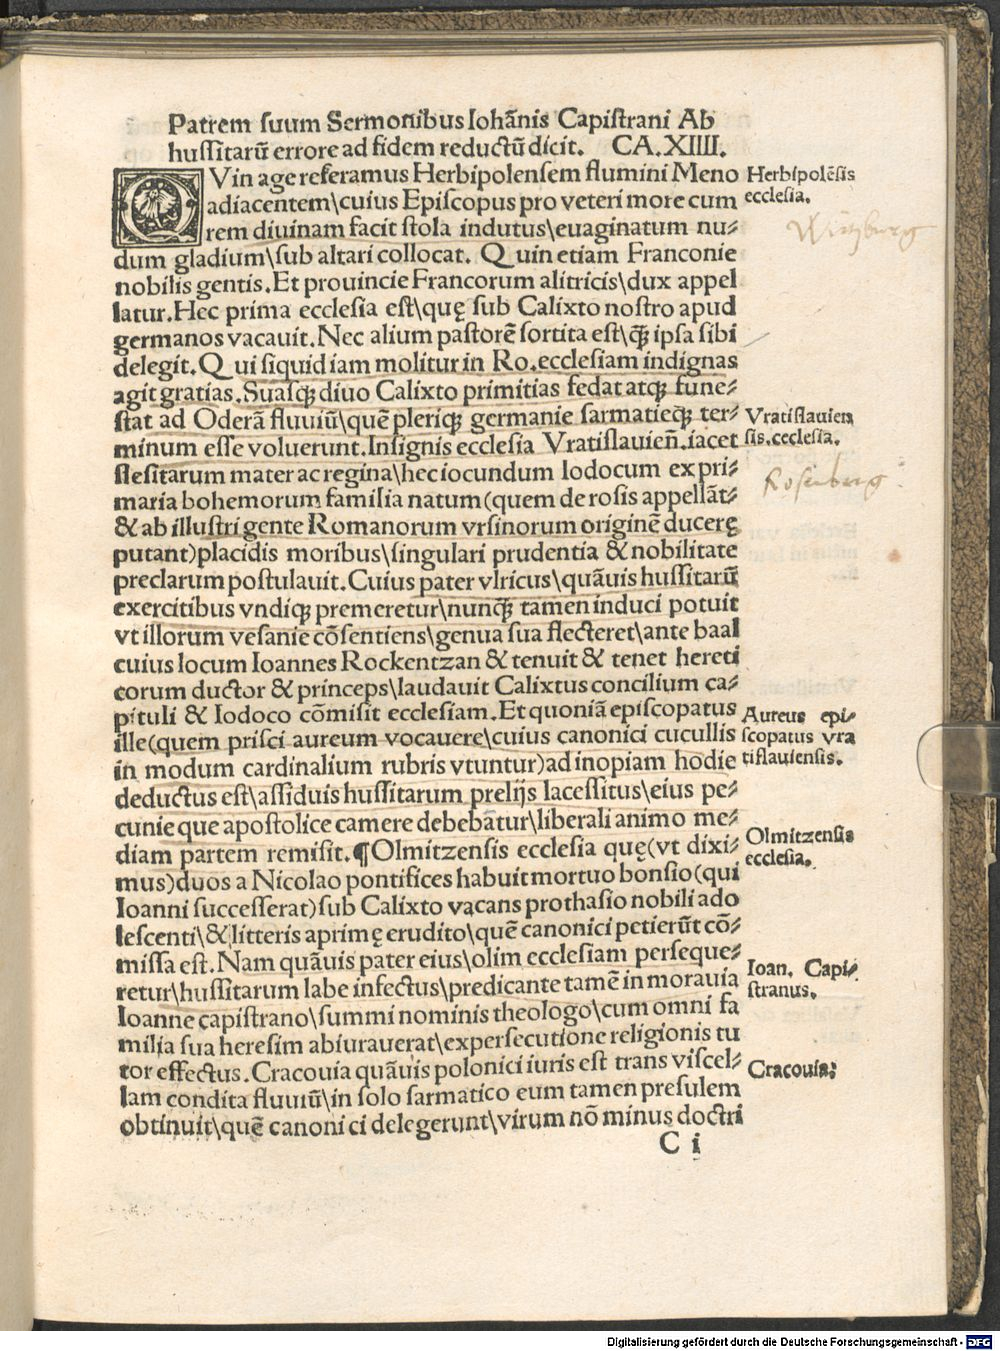 Patrem suum Sermonibus Iohãnis Capistrani Ab
hussitarũ errore ad fidem reductũ dicit. CA. XIIII.
QVin age referamus Herbipolensem flumini Meno
adiacentem\cuius Episcopus pro veteri more cum
rem diuinam facit stola indutus\euaginatum nu⸗
dum gladium\sub altari collocat. Quin etiam Franconie
nobilis gentis. Et prouincie Francorum alitricis\dux appel
latur. Hec prima ecclesia est\quę sub Calixto nostro apud
germanos vacauit. Nec alium pastorẽ sortita est\q̃ꝫ ipsa sibi
delegit. Qui siquid iam molitur in Ro. ecclesiam indignas
agit gratias. Suasqꝫ diuo Calixto primitias fedat atqꝫ fune⸗
stat ad Oderã fluuiũ\quẽ pleriqꝫ germanie sarmatieqꝫ ter⸗
minum esse voluerunt. Insignis ecclesia Vratislauieñ. iacet
slesitarum mater ac regina\hec iocundum Iodocum ex pri⸗
maria bohemorum familia natum(quem de rosis appellãt⸗
& ab illustri gente Romanorum vrsinorum originẽ ducere
putant)placidis moribus\singulari prudentia & nobilitate
preclarum postulauit. Cuius pater vlricus\quãuis hussitarũ
exercitibus vndiqꝫ premeretur\nunq̃ꝫ tamen induci potuit
vt illorum vesanie cõsentiens\genua sua flecteret\ante baal
cuius locum Ioannes Rockentzan & tenuit & tenet hereti
corum ductor & princeps\laudauit Calixtus concilium ca⸗
pituli & Iodoco cõmisit ecclesiam. Et quoniã episcopatus
ille(quem prisci aureum vocauere\cuius canonici cucullis
in modum cardinalium rubris vtuntur)ad inopiam hodie
deductus est\assiduis hussitarum prelijs lacessitus\eius pe⸗
cunie que apostolice camere debebatur\liberali animo me⸗
diam partem remisit. ¶Olmitzensis ecclesia quę(vt dixi⸗
mus)duos a Nicolao pontifices habuit mortuo bonsio(qui
Ioanni successerat)sub Calixto vacans prothasio nobili ado
lescenti\& litteris aprimę erudito\quẽ canonici petierũt cõ⸗
missa est. Nam quãuis pater eius\olim ecclesiam perseque⸗
retur\hussitarum labe infectus\predicante tamẽ in morauia
Ioanne capistrano\summi nominis theologo\cum omni fa
milia sua heresim abiurauerat\ex persecutione religionis tu
tor effectus. Cracouia quãuis polonici iuris est trans viscel⸗
lam condita fluuiũ\in solo sarmatico eum tamen presulem
obtinuit\quẽ canonici delegerunt\virum nõ minus doctri
C i
Herbipolẽsis
ecclesia.
Würzburg
Vratislauien
sis. ecclesia.
Rosenberg
Aureus epi⸗
scopatus vra
tislauiensis.
Olmitzensis
ecclesia.
Ioan. Capi⸗
stranus.
Cracouia:
Digitalisierung gefördert durch die Deutsche Forschungsgemeinschaft - DFG